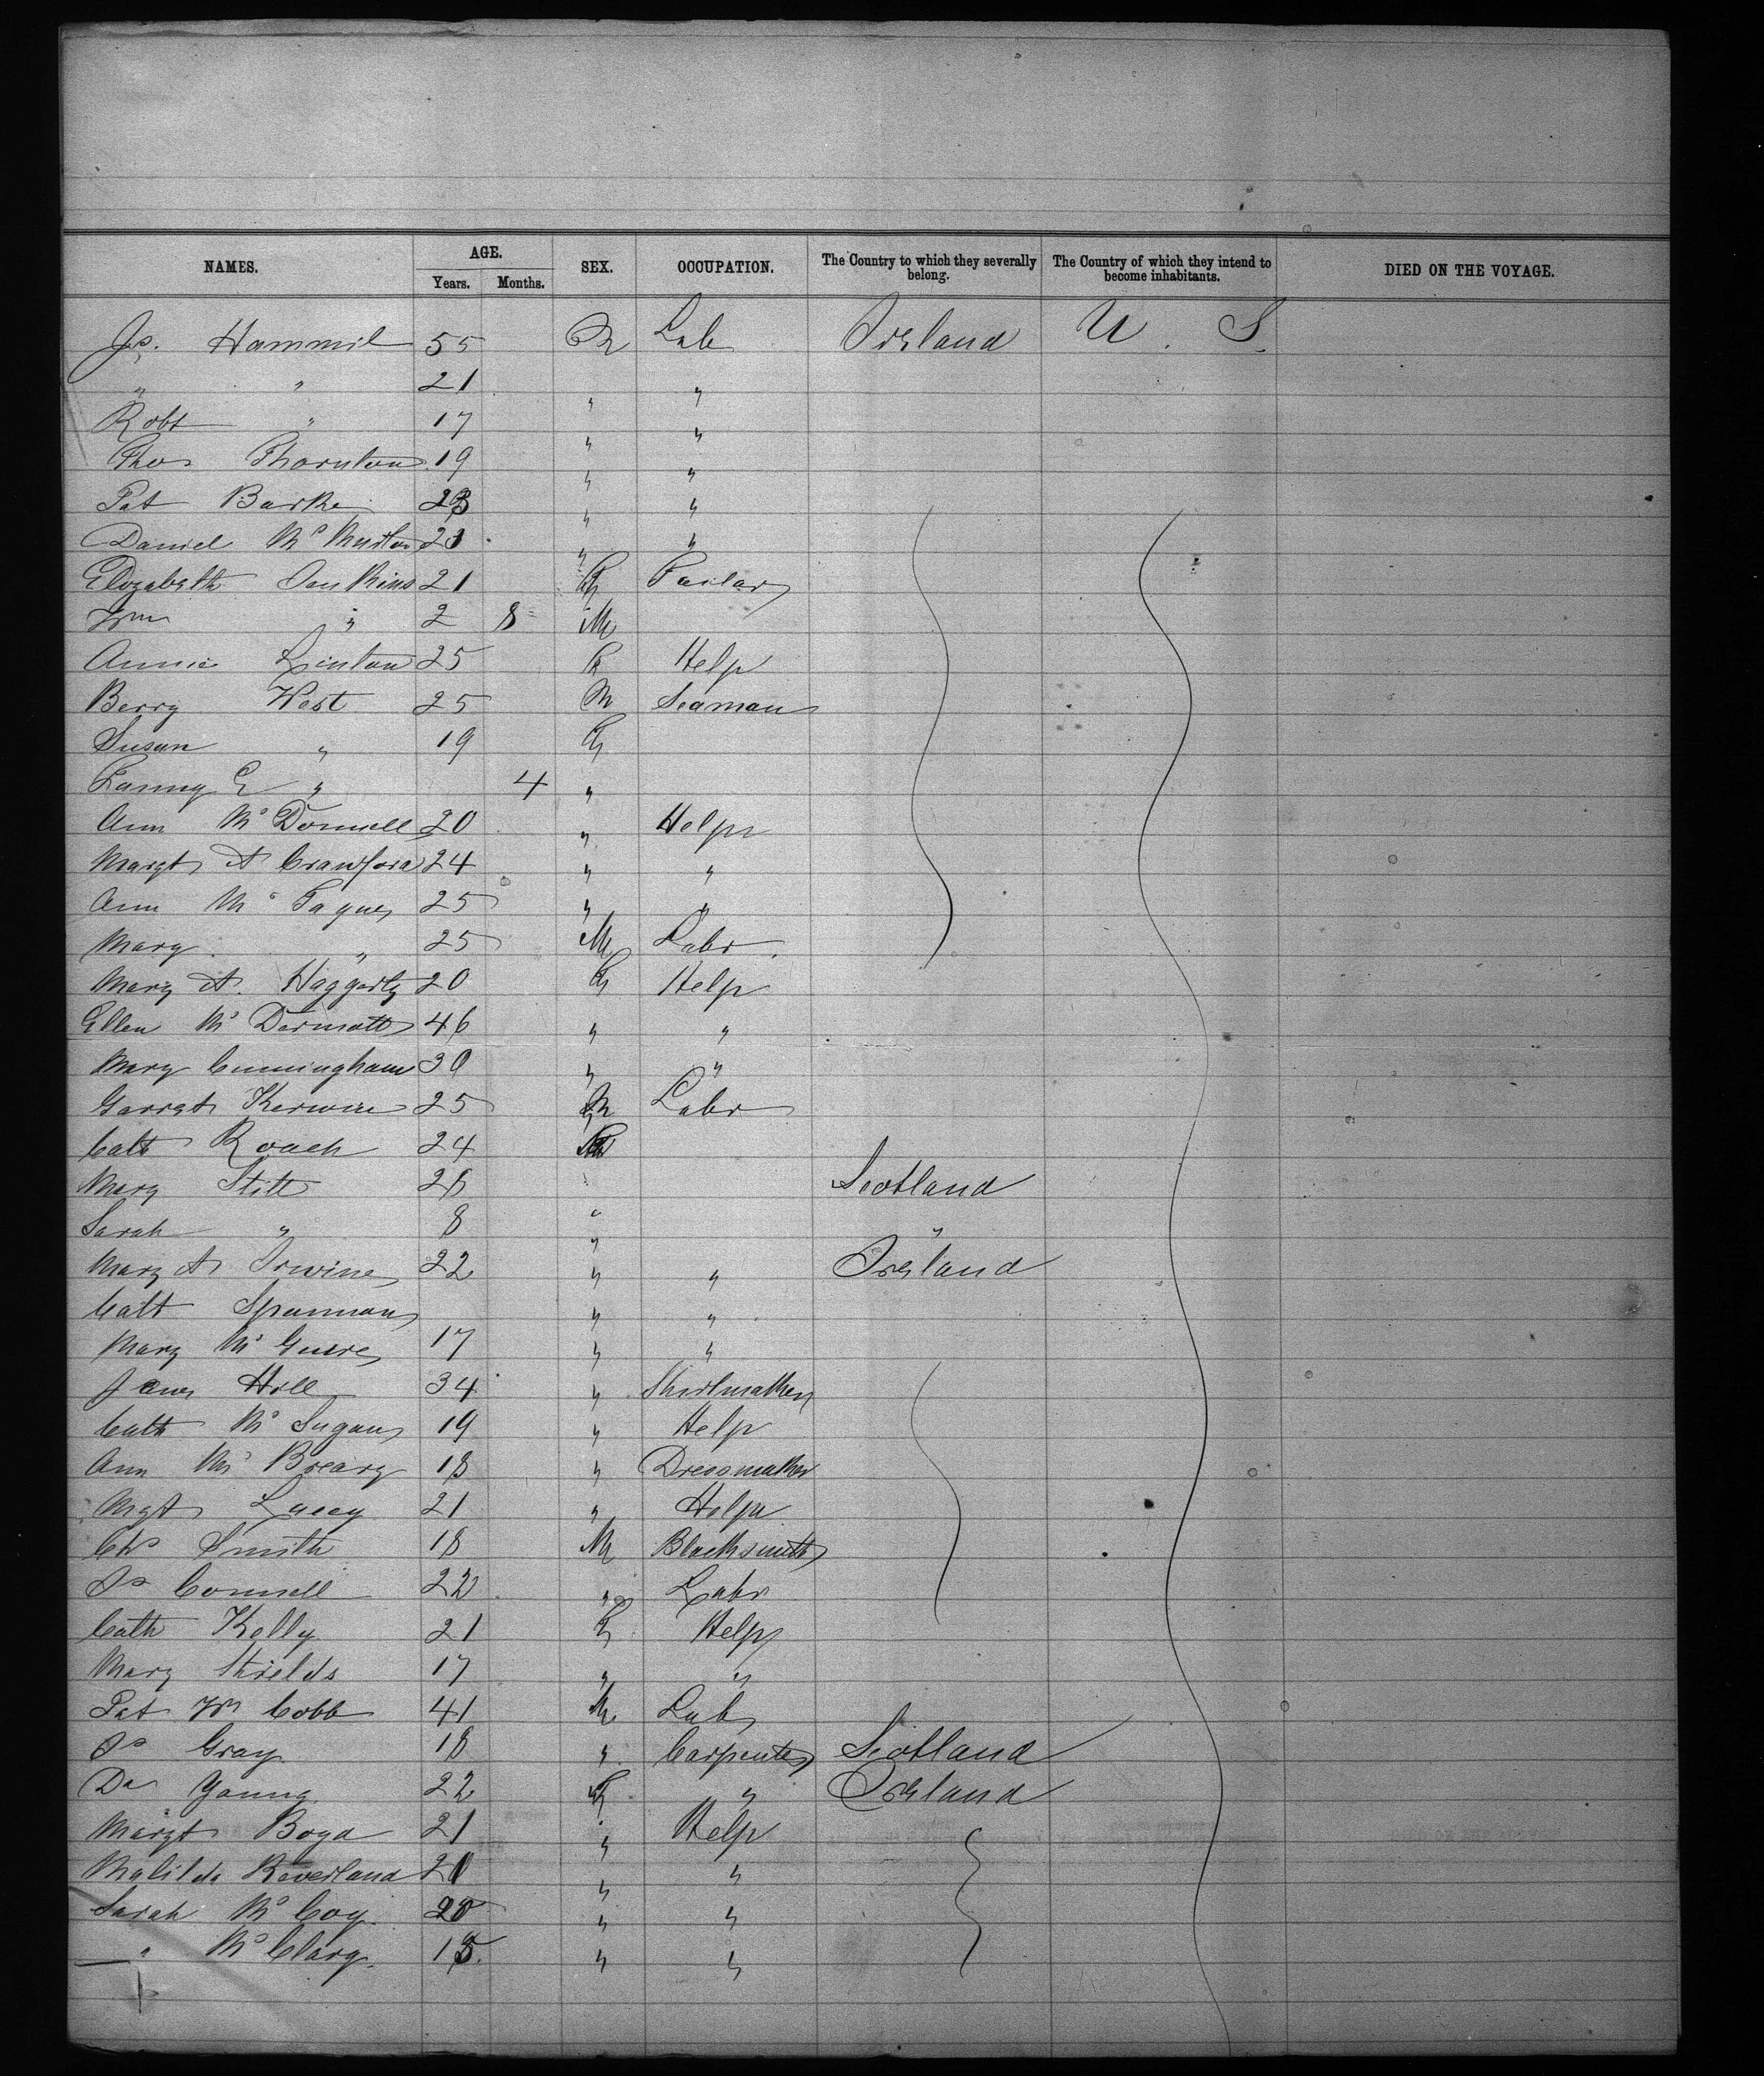 NAMES. AGE. SEX. OCCUPATION. The Country to which they severally belong. The Country of which they intend to become inhabitants. DIED ON THE VOYAGE.
Years. Months.
Js. Hammil 55 M Lab Ireland U. S.
" " 21 " "
Robt " 17 " "
Thos Thornton 19 " "
Pat Burke 23 " "
Daniel Mc 21 " "
Elizabeth Jenkins 21 F Tailor
Wm " 2 8 M
Annie Linton 25 F Help
Berry West 25 M Seaman
Susan " 19 F
Fanny E " 4 "
Ann McDonnell 20 " Help
Margt A Crawford 24 " "
Ann McTague 25 " "
Mary " 25 M Labr
Mary A. Haggerty 20 F Help
Ellen McDermott 46 " "
Mary Cunningham 30 " "
Garret Kerwin 25 M Labr
Cath Roach 24
Mary Stitt 28 Scotland
Sarah " 8 " "
Mary A Irwine 22 " " Ireland
Cath " "
Mary McGuire 17 " "
Hill 34 " Shirtmaker
Cath Mc 19 " Help
Ann McBreary 18 " Dressmaker
Mgt Lacey 21 " Help
Chs Smith 18 M Blacksmith
Js Connell 22 " Labr
Cath Kelly 21 F Help
Mary Shields 17 " "
Pat Cobb 41 M Lab
Js Gray 18 " Carpenter Scotland
Da Young 22 F " Ireland
Margt Boyd 21 " Help
Matilda Kaverland 21 " "
Sarah McCoy 20 " "
" McClary 15 " "